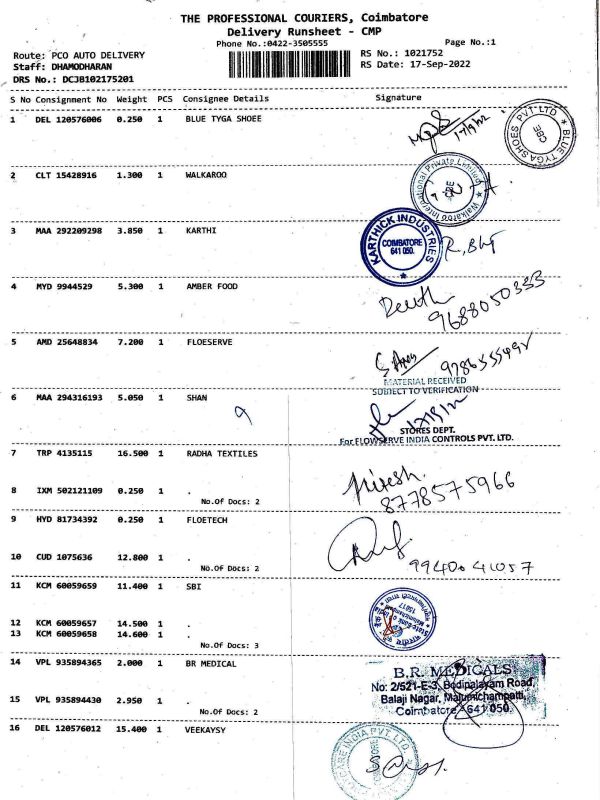 THE PROFESSIONAL COURIERS, Coimbatore
Delivery Runsheet - CMP
Phone No.:0422-3505555 Page No.:1
Route: PCO AUTO DELIVERY RS No.: 1021752
Staff: DHAMODHARAN RS Date: 17-Sep-2022
DRS No.: DCJB102175201
S No Consignment No Weight PCS Consignee Details Signature
1 DEL 120576006 0.250 1 BLUE TYGA SHOEE
17/9/22
BLUE TYGA SHOES PVT LTD CBE
2 CLT 15428916 1.300 1 WALKAROO
Walkaroo International Private Limited
3 MAA 292209298 3.850 1 KARTHI
KARTHICK INDUSTRIES COIMBATORE 641 050.
4 MYD 9944529 5.300 1 AMBER FOOD
9688050333
5 AMD 25648834 7.200 1 FLOESERVE
MATERIAL RECEIVED
SUBJECT TO VERIFICATION
6 MAA 294316193 5.050 1 SHAN
STORES DEPT.
For FLOWSERVE INDIA CONTROLS PVT. LTD.
7 TRP 4135115 16.500 1 RADHA TEXTILES
8 IXM 502121109 0.250 1 .
No.Of Docs: 2
8778575966
9 HYD 81734392 0.250 1 FLOETECH
10 CUD 1075636 12.800 1 .
No.Of Docs: 2
99400 41057
11 KCM 60059659 11.400 1 SBI
State Bank of India
12 KCM 60059657 14.500 1 .
13 KCM 60059658 14.600 1 .
No.Of Docs: 3
14 VPL 935894365 2.000 1 BR MEDICAL
B.R. MEDICALS
No: 2/521-E-3, Bodipalayam Road,
Balaji Nagar, Malumichampatti,
Coimbatore - 641 050.
15 VPL 935894430 2.950 1 .
No.Of Docs: 2
16 DEL 120576012 15.400 1 VEEKAYSY